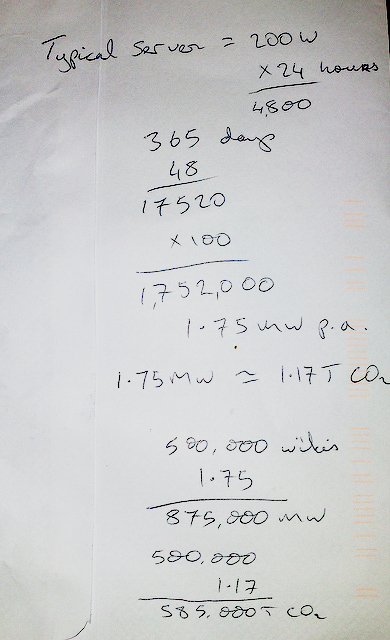 Typical Server = 200W
× 24 hours
4,800
365 days
48
17520
× 100
1,752,000
1.75 mw p.a.
1.75 Mw ≃ 1.17 T CO2
500,000 wikis
1.75
875,000 mw
500,000
1.17
585,000T CO2